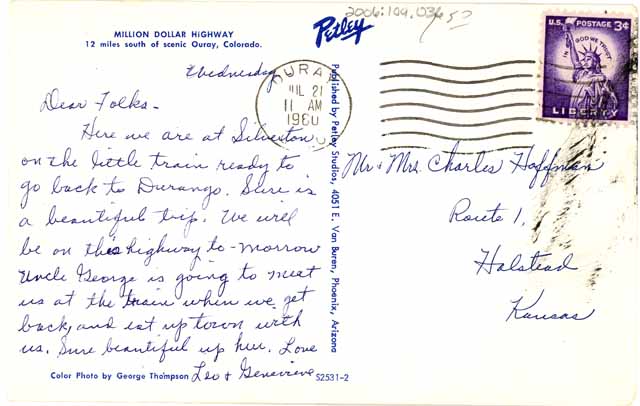 MILLION DOLLAR HIGHWAY
12 miles south of scenic Ouray, Colorado.
Petley
2006.199.036
U.S. POSTAGE 3¢
IN GOD WE TRUST
LIBERTY
OURAY
JUL 21
11 AM
1960
Wednesday
Dear Folks -
Here we are at Silverton
on the little train ready to
go back to Durango. Sure is
a beautiful trip. We will
be on this highway to-morrow
Uncle George is going to meet
us at the train when we get
back, and eat up town with
us. Sure beautiful up here. Love
Leo + Genevieve
Color Photo by George Thompson
S2531-2
Published by Petley Studios, 4051 E. Van Buren, Phoenix, Arizona
Mr + Mrs. Charles Hoffman
Route 1,
Halstead
Kansas